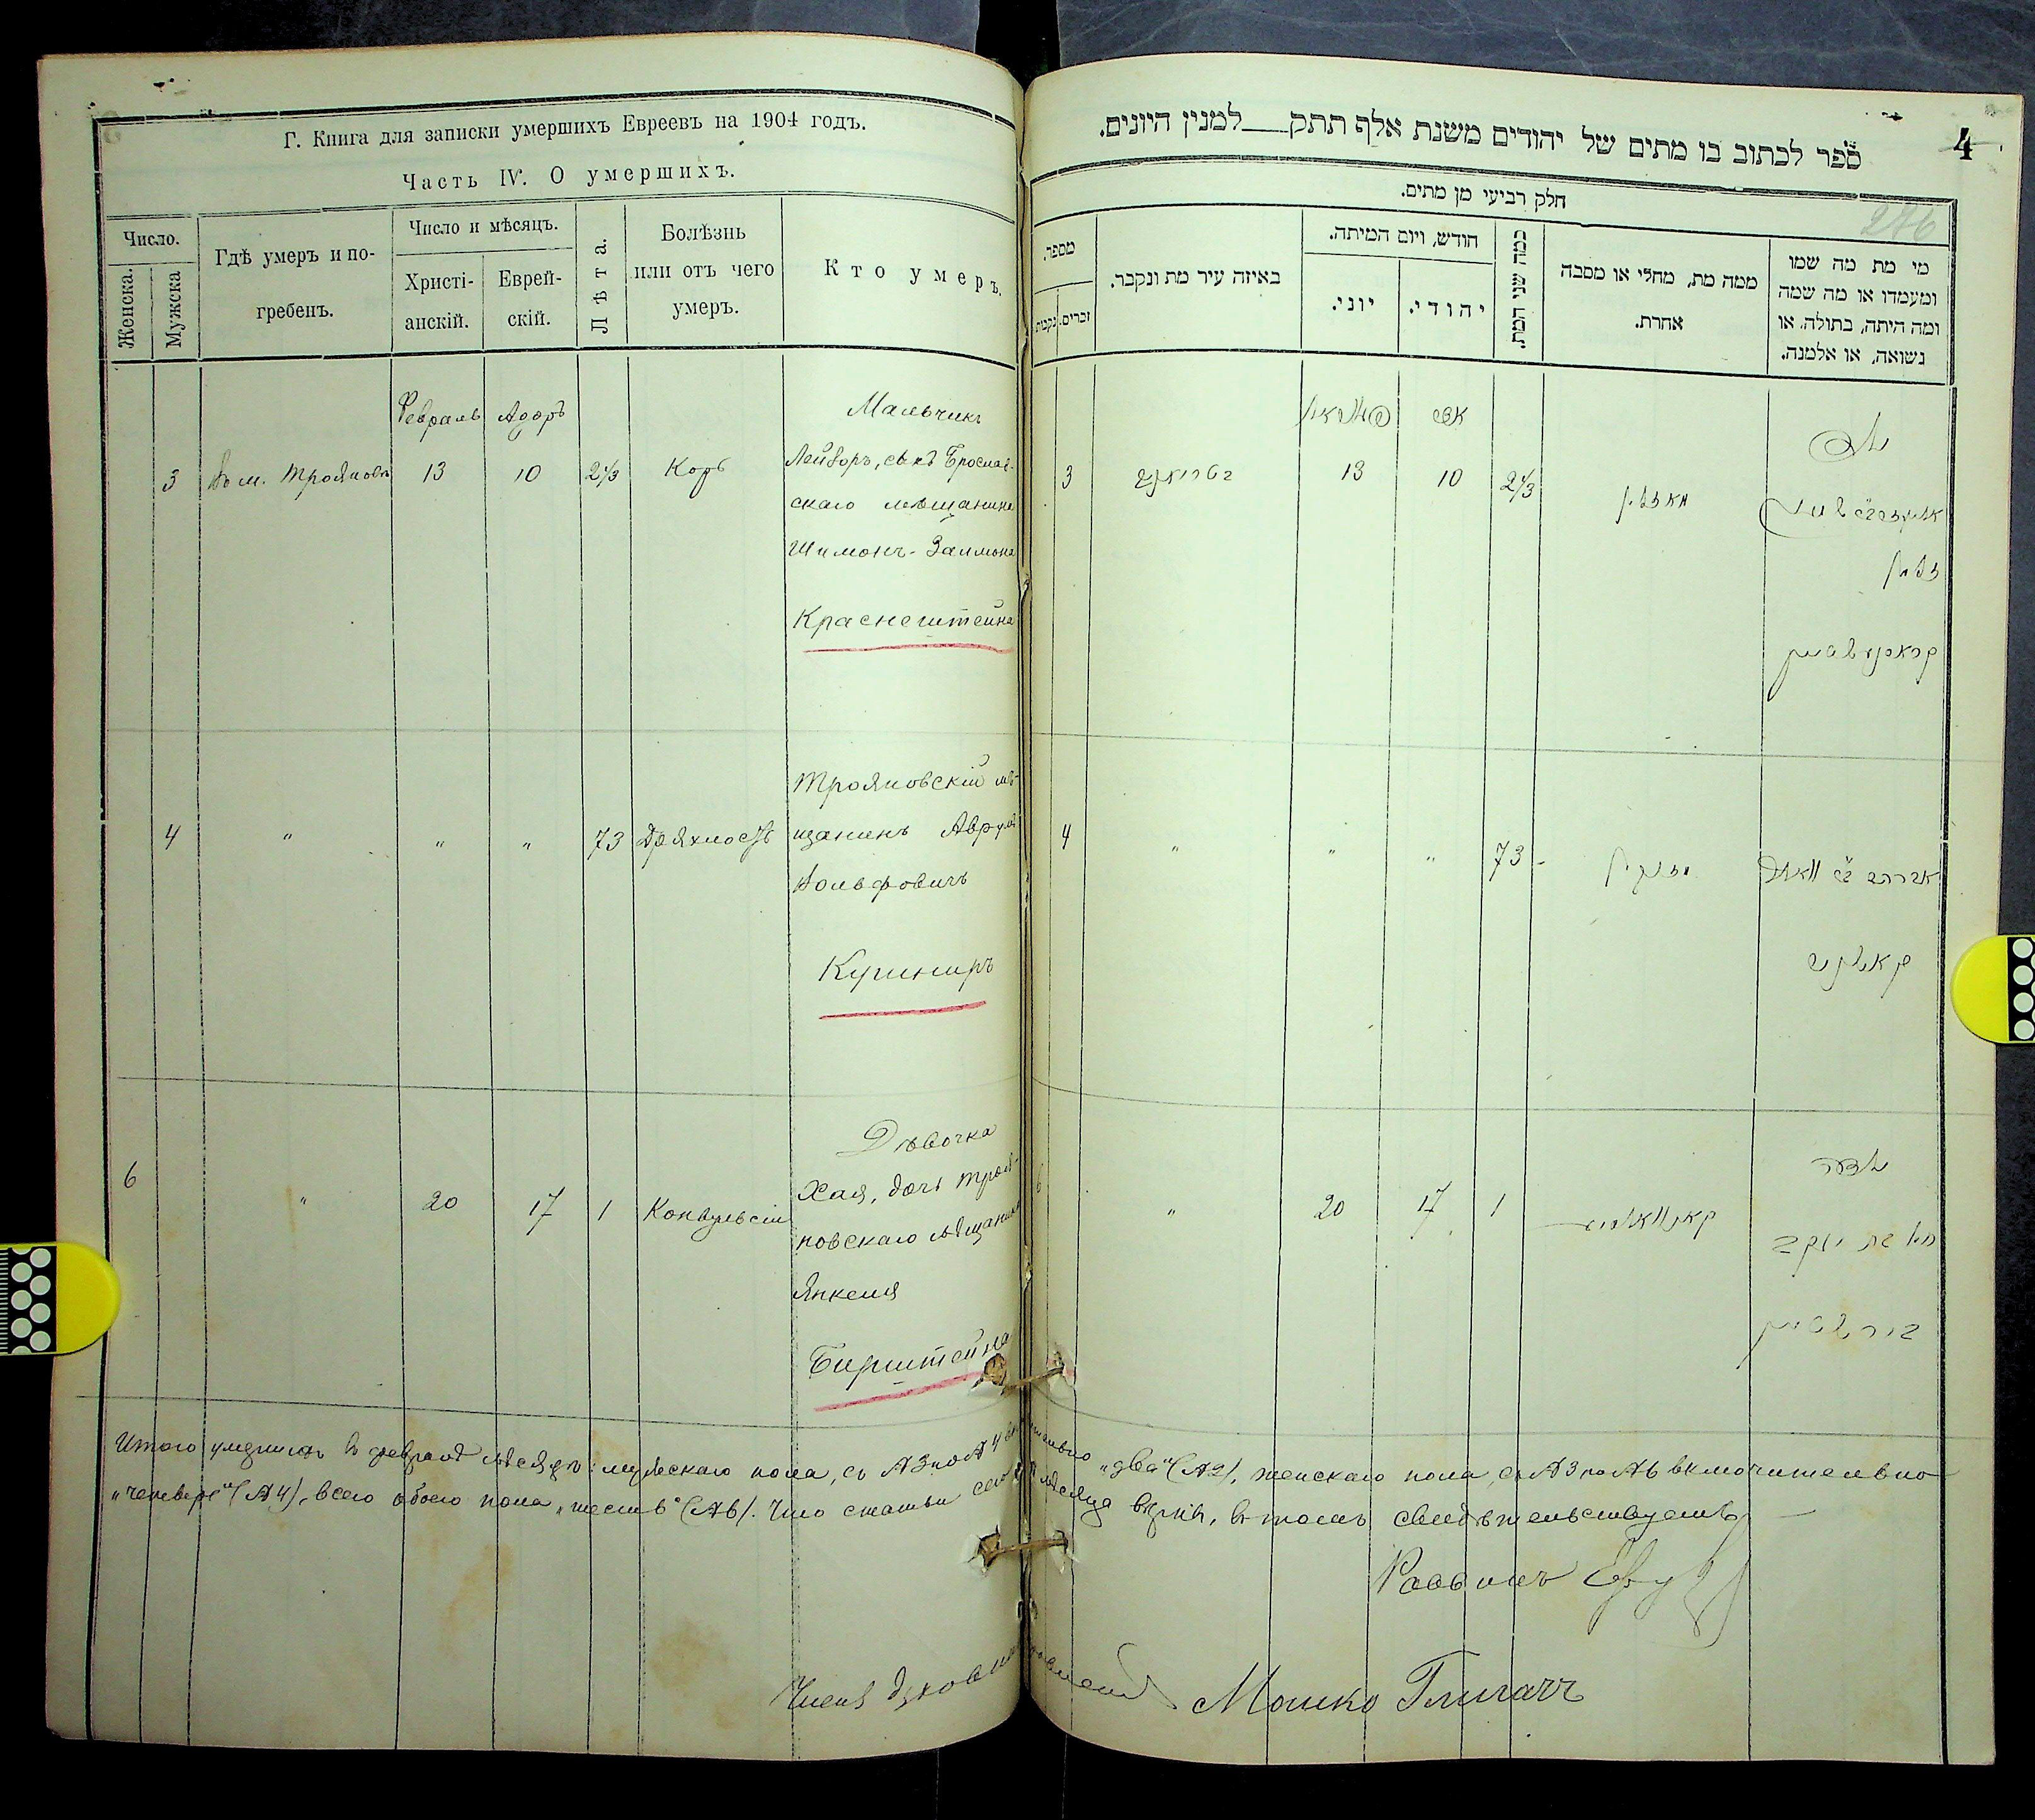 Г. Книга для записки умершихъ Евреевъ на 1904 годъ.
Часть IV. О умершихъ.
Число.
Женска.
Мужска
Гдѣ умеръ и по-
гребенъ.
Число и мѣсяцъ.
Христі-
анскій.
Еврей-
скій.
Лѣта.
Болѣзнь
или отъ чего
умеръ.
Кто умеръ.
Февраль Адаръ
3 Въ м. Трояновъ 13 10 2 1/3 Корь
Мальчикъ
Лейзоръ, сынъ
скаго мѣщанина
Шимонъ-Залмона
Красненштейна
4 " " " 73 Дряхлость
Трояновскій мѣ-
щанинъ Аврумъ
Вольфовичъ
Кушниръ
6 " 20 17 1 Конвульсіи
Дѣвочка
Хая, дочь Троя-
новскаго мѣщанина
Янкеля
Бирштейна
ספר לכתוב בו מתים של יהודים משנת אלף תתק__למנין היונים.
4
276
חלק רביעי מן מתים.
מספר.
זכרים.
נקבות
באיזה עיר מת ונקבר.
חודש, ויום המיתה.
יוני.
יהודי.
כמה שני המת.
ממה מת, מחלי או מסבה
אחרת.
מי מת מה שמו
ומעמדו או מה שמה
ומה היתה, בתולה, או
נשואה, או אלמנה.
אדר
3 13 10 2 1/3 מאזלין
ילד
זלמן
4 " " " 73 מזוקן
אברהם בר וואלף
קאושנער
6 " 20 17 1
ילדה
חיה בת יעקב
בירשטיין
Итого умершихъ въ февралѣ мѣсяцѣ: мужскаго пола, съ №3 по №4 включительно „два“ (№2), женскаго пола, съ №3 по №6 включительно
„четыре“ (№4), всего обоего пола „шесть“ (№6). Что статьи сего мѣсяца вѣрны, въ томъ свидѣтельствуемъ
Раввинъ
Членъ духовнаго правленія Мошко Глигачъ